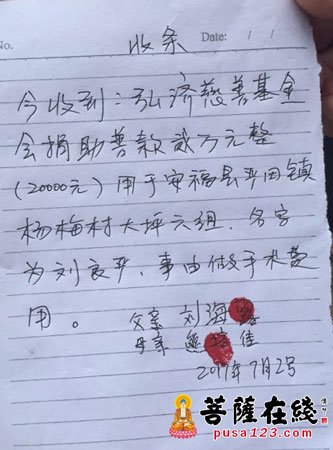 No.
收条
Date: / /
今收到：弘济慈善基金
会捐助善款贰万元整
(20000元) 用于安福县平田镇
杨梅村大坪六组，名字
为刘良平，事由做手术费
用。
父亲 刘海
母亲 熊 佳
2017年7月2号
菩薩在綫
pusa123.com